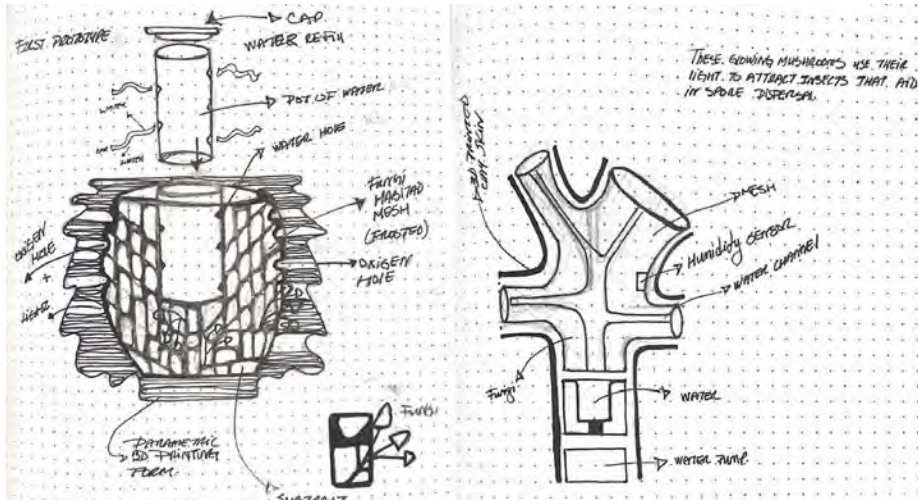 FIRST PROTOTYPE
CAP
WATER REFILL
POT OF WATER
WATER
WATER
WATER HOLE
FUNGI
HABITAD
MESH
(FROSTED)
OXIGEN
HOLE
OXIGEN
HOLE
+
LIGHT
PARAMETRIC
3D PRINTING
FORM.
FUNGI
THESE GLOWING MUSHROOMS USE THEIR
LIGHT TO ATTRACT INSECTS THAT AID
IN SPORE DISPERSAL.
3D PRINTED
CLAY SKIN
MESH
HUMIDIFY SENSOR
WATER CHANNEL
FUNGI
WATER
WATER PUMP